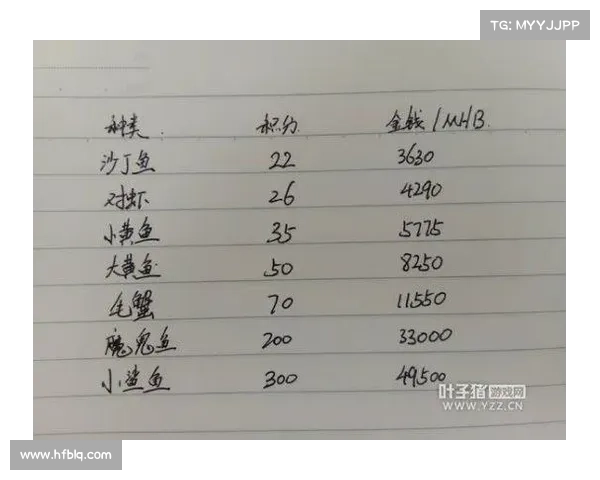 TG: MYYJJPP
种类 积分 金钱/MHB
沙丁鱼 22 3630
对虾 26 4290
小黄鱼 35 5775
大黄鱼 50 8250
毛蟹 70 11,550
魔鬼鱼 200 33000
小鲨鱼 300 49,500
叶子猪 游戏网
www.YZZ.CN
www.hfblq.com